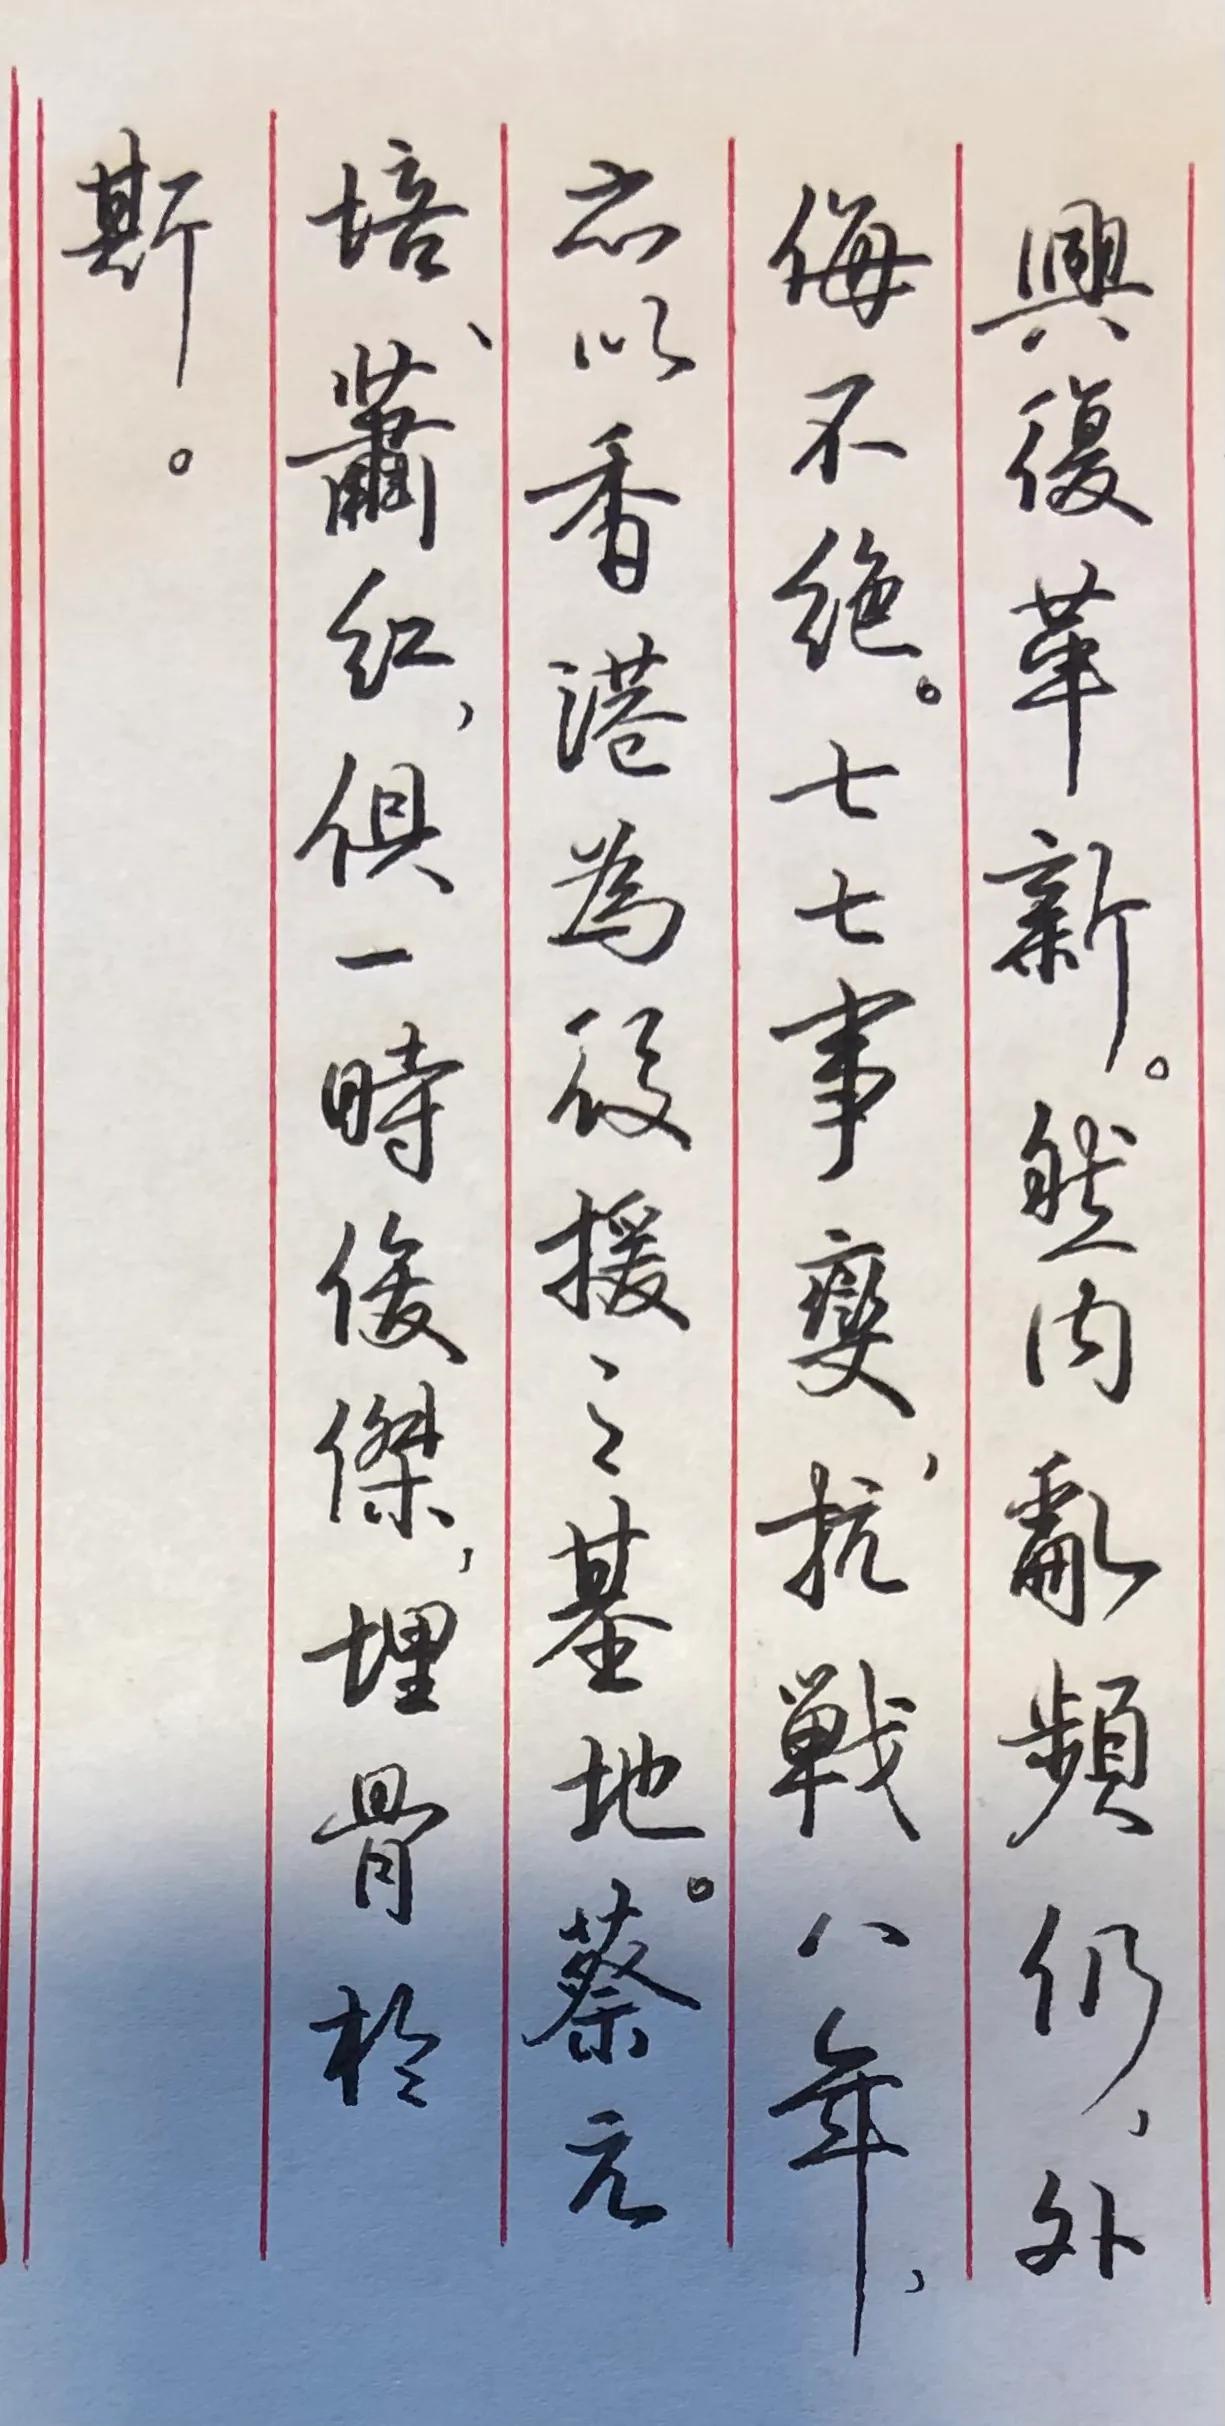 興復革新。然内亂頻仍，外
侮不絶。七七事變，抗戰八年，
亦以香港為後援之基地。蔡元
培、蕭紅，俱一時俊傑，埋骨於
斯。